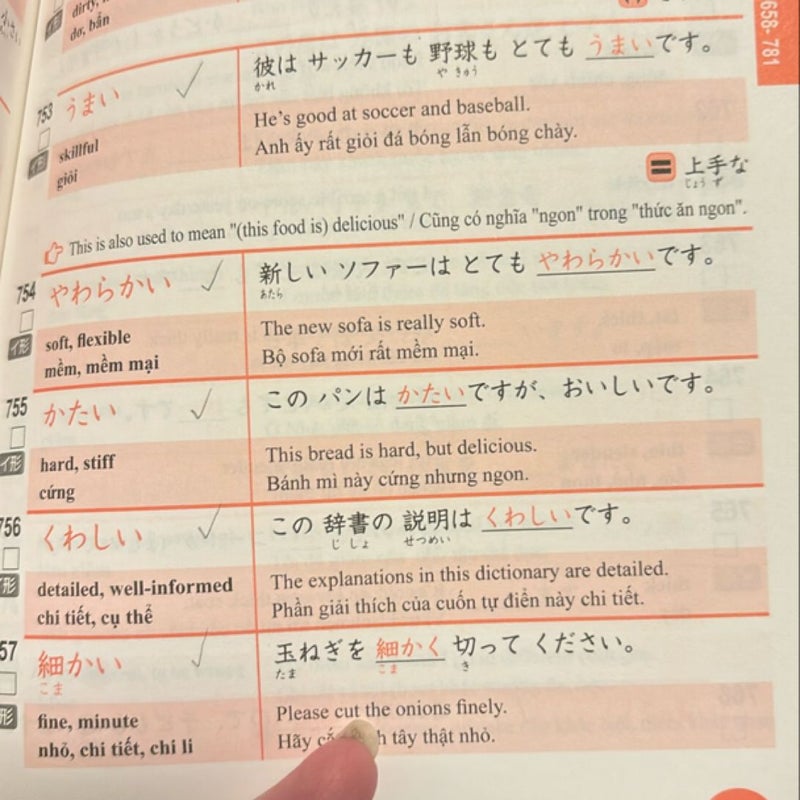 dirty,
dơ, bẩn
658- 781
753 うまい
イ形
skillful
giỏi
彼は サッカーも 野球も とても うまいです。
かれ や きゅう
He's good at soccer and baseball.
Anh ấy rất giỏi đá bóng lẫn bóng chày.
= 上手な
じょう ず
This is also used to mean "(this food is) delicious" / Cũng có nghĩa "ngon" trong "thức ăn ngon".
754 やわらかい
イ形
soft, flexible
mềm, mềm mại
新しい ソファーは とても やわらかいです。
あたら
The new sofa is really soft.
Bộ sofa mới rất mềm mại.
755 かたい
イ形
hard, stiff
cứng
この パンは かたいですが、おいしいです。
This bread is hard, but delicious.
Bánh mì này cứng nhưng ngon.
756 くわしい
形
detailed, well-informed
chi tiết, cụ thể
この 辞書の 説明は くわしいです。
じ しょ せつめい
The explanations in this dictionary are detailed.
Phần giải thích của cuốn tự điển này chi tiết.
57 細かい
こま
形
fine, minute
nhỏ, chi tiết, chi li
玉ねぎを 細かく 切って ください。
たま こま き
Please cut the onions finely.
Hãy tây thật nhỏ.